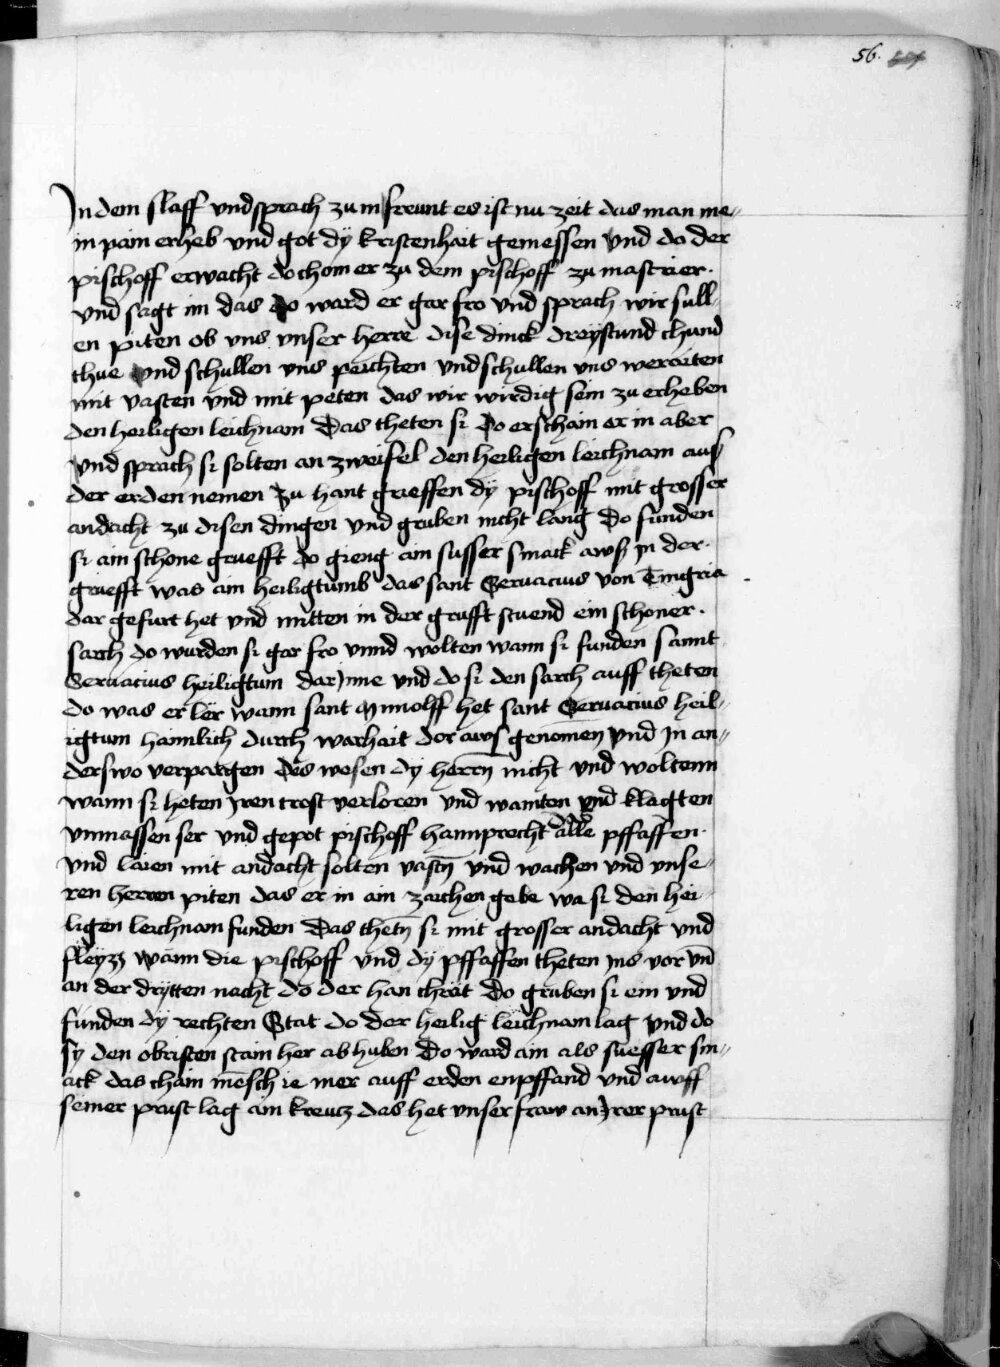 56.
In dem slaff und sprach zu im frewnt es ist nu zeit das man me⸗
in pain erheb und got dÿ kristenhait gemessen und do der
pischoff erwacht do chom er zu dem pischoff zu mastrier.
und sagt im das Do ward er gar fro und sprach wir süll⸗
en piten ob uns unser herre dise dinck dreÿstund chund
thue und schullen uns peichten und schullen uns weraiten
mit vasten und mit peten das wir wirdig sein zu erheben
den heiligen leichnam Das theten si Do erschain er in aber
und sprach si solten an zweifel den heiligen leichnam auß
der erden nemen Zu hant grieffen dÿ pischoff mit grosser
andacht zu disen dingen und gruben nicht lang Do funden
si ain schone gruefft do gieng ain susser smack awß in der.
gruefft was ain heiligtumb das sant Servacius von Tungria
dar gefurt het und mitten in der grufft stuend ein schoner.
sarch do wurden si gar fro unnd wolten wann si funden sannt
Servacius heiligtum dar Inne und do si den sarch auff theten
do was er lër wann sant Munolff het sant Servacius heil⸗
igtum haimlich durch warhait dor aws genomen und In an⸗
derswo verpargen Des wesen dÿ herrn nicht und woltenn
wann si heten iren trost verloren und wainten und klagten
unmassen ser und gepot pischoff hannprecht alle pffaffen.
und laien mit andacht solten vastn und wachen und unse⸗
ren herren piten das er in ain zaichen gebe wa si den hei⸗
ligen leichnam funden Das thetn si mit grosser andacht und
fleyzz wann die pischoff und dÿ pffaffen theten ins vor und
an der drÿtten nacht do der han chrät Do gruben si ein und
funden dÿ rechten Stat do der heilig leichnam lag und do
sÿ den obristen stain her ab huben Do ward ain als suesser sm⸗
ack das chain mensch ie mer auff erden enpffand und awff
seiner prust lag ain kreutz das het unser fraw an Irer prust